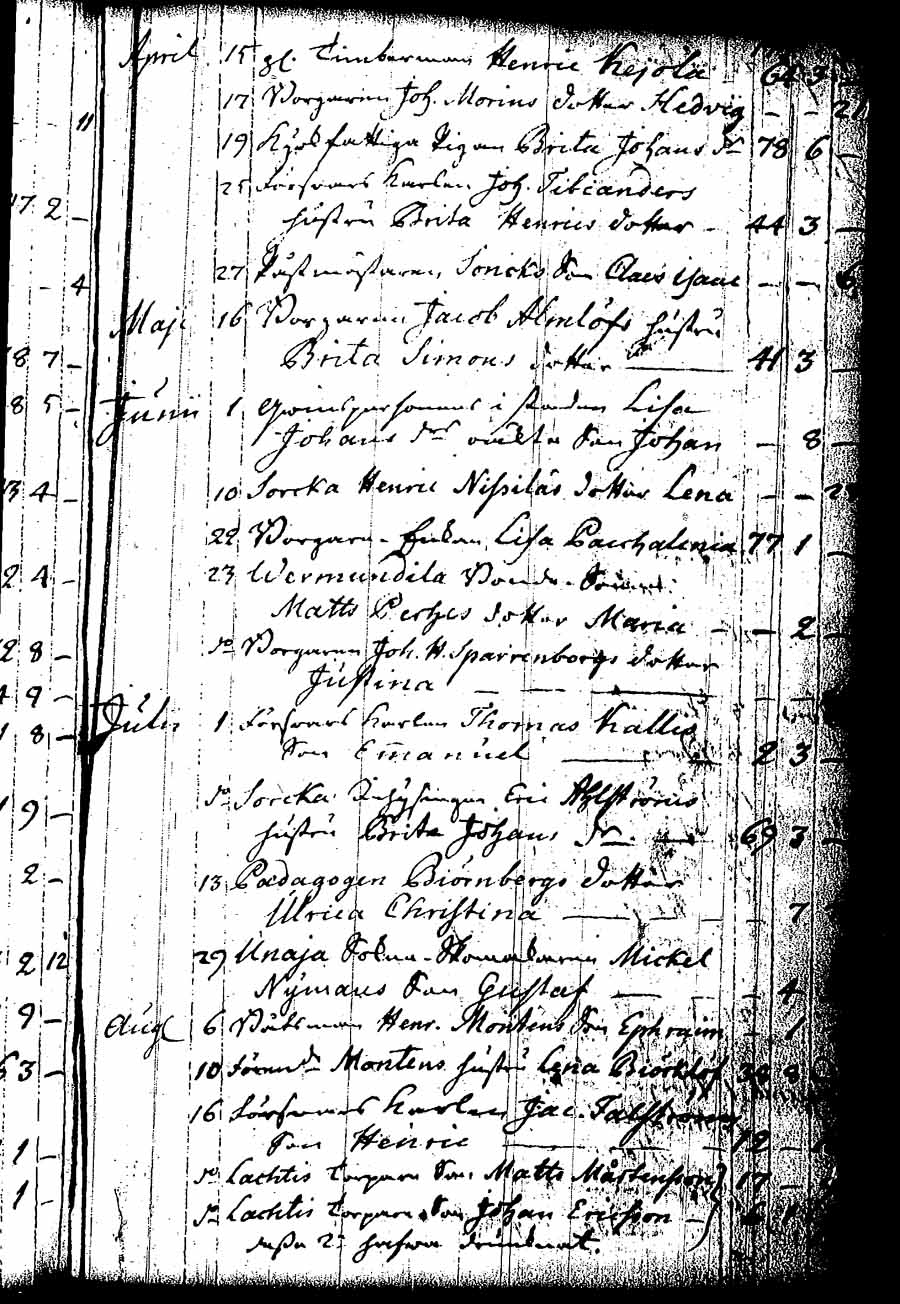 April 15 gl. Timberman Henric Kejola 64 3
11 17 Borgaren Joh. Morins dotter Hedvig - - 21
19 Hjelpfattiga Pigan Brita Johans dr 78 6 -
25 Försvars Karlen Joh. Tileanders
17 2 - hustru Brita Henrics dotter - 44 3 -
4 27 Postmästaren Soncks Son Claes Isaac - - 6
Maji 16 Borgaren Jacob Almlöfs hustru
8 7 - Brita Simons dotter 41 3 -
8 5 - Junii 1 i staden Lisa
Johans drs oäkta Son Johan - 8 -
3 4 - 10 Sorcka Henric Nissiläs dotter Lena - -
22 Borgare-Enkan Lisa Paschalenia 77 1 -
2 4 - 23 Wermundila Bonde-Sonens
Matts Pertzes dotter Maria - - 2 -
2 8 - do Borgaren Joh. H. Sparrenborgs dotter
4 9 - Justina - - -
8 - Julii 1 Försvars Karlen Thomas Kallis
Son Emanuel 2 3 -
9 - do Sorcka Inhysingen Eric Ahlströms
hustru Brita Johans dr - 69 3 -
2 - 13 Pædagogen Biörnbergs dotter
Ulrica Christina - 7
2 12 29 Unaja Sokne-Skomakaren Mickel
Nymans Son Gustaf - - 4
9 - Aug 6 Båtsman Henr. Montens Son Ephraim - 1
3 - 10 Förende Montens hustru Lena Biörklöf 34 8
16 Försvars Karlen Jac. Falströms
1 - Son Henric 12 -
do Lachtis Torpare Son Matts Mårtensson 17 -
1 - do Lachtis Torpare Son Johan Ericsson -
dessa 2ne hafva drunknat.